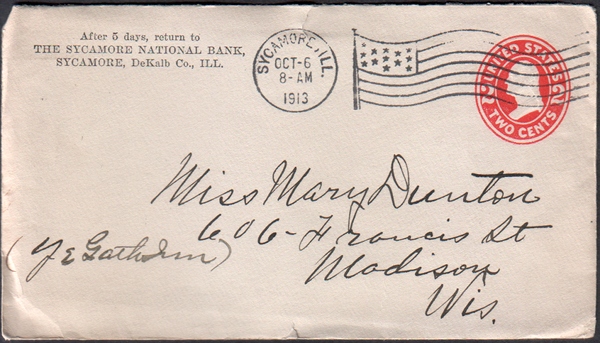 After 5 days, return to
THE SYCAMORE NATIONAL BANK,
SYCAMORE, DeKalb Co., ILL.
SYCAMORE, ILL.
OCT-6
8-AM
1913
UNITED STATES
TWO CENTS
Miss Mary Dunton
606-Francis St
Madison
Wis.